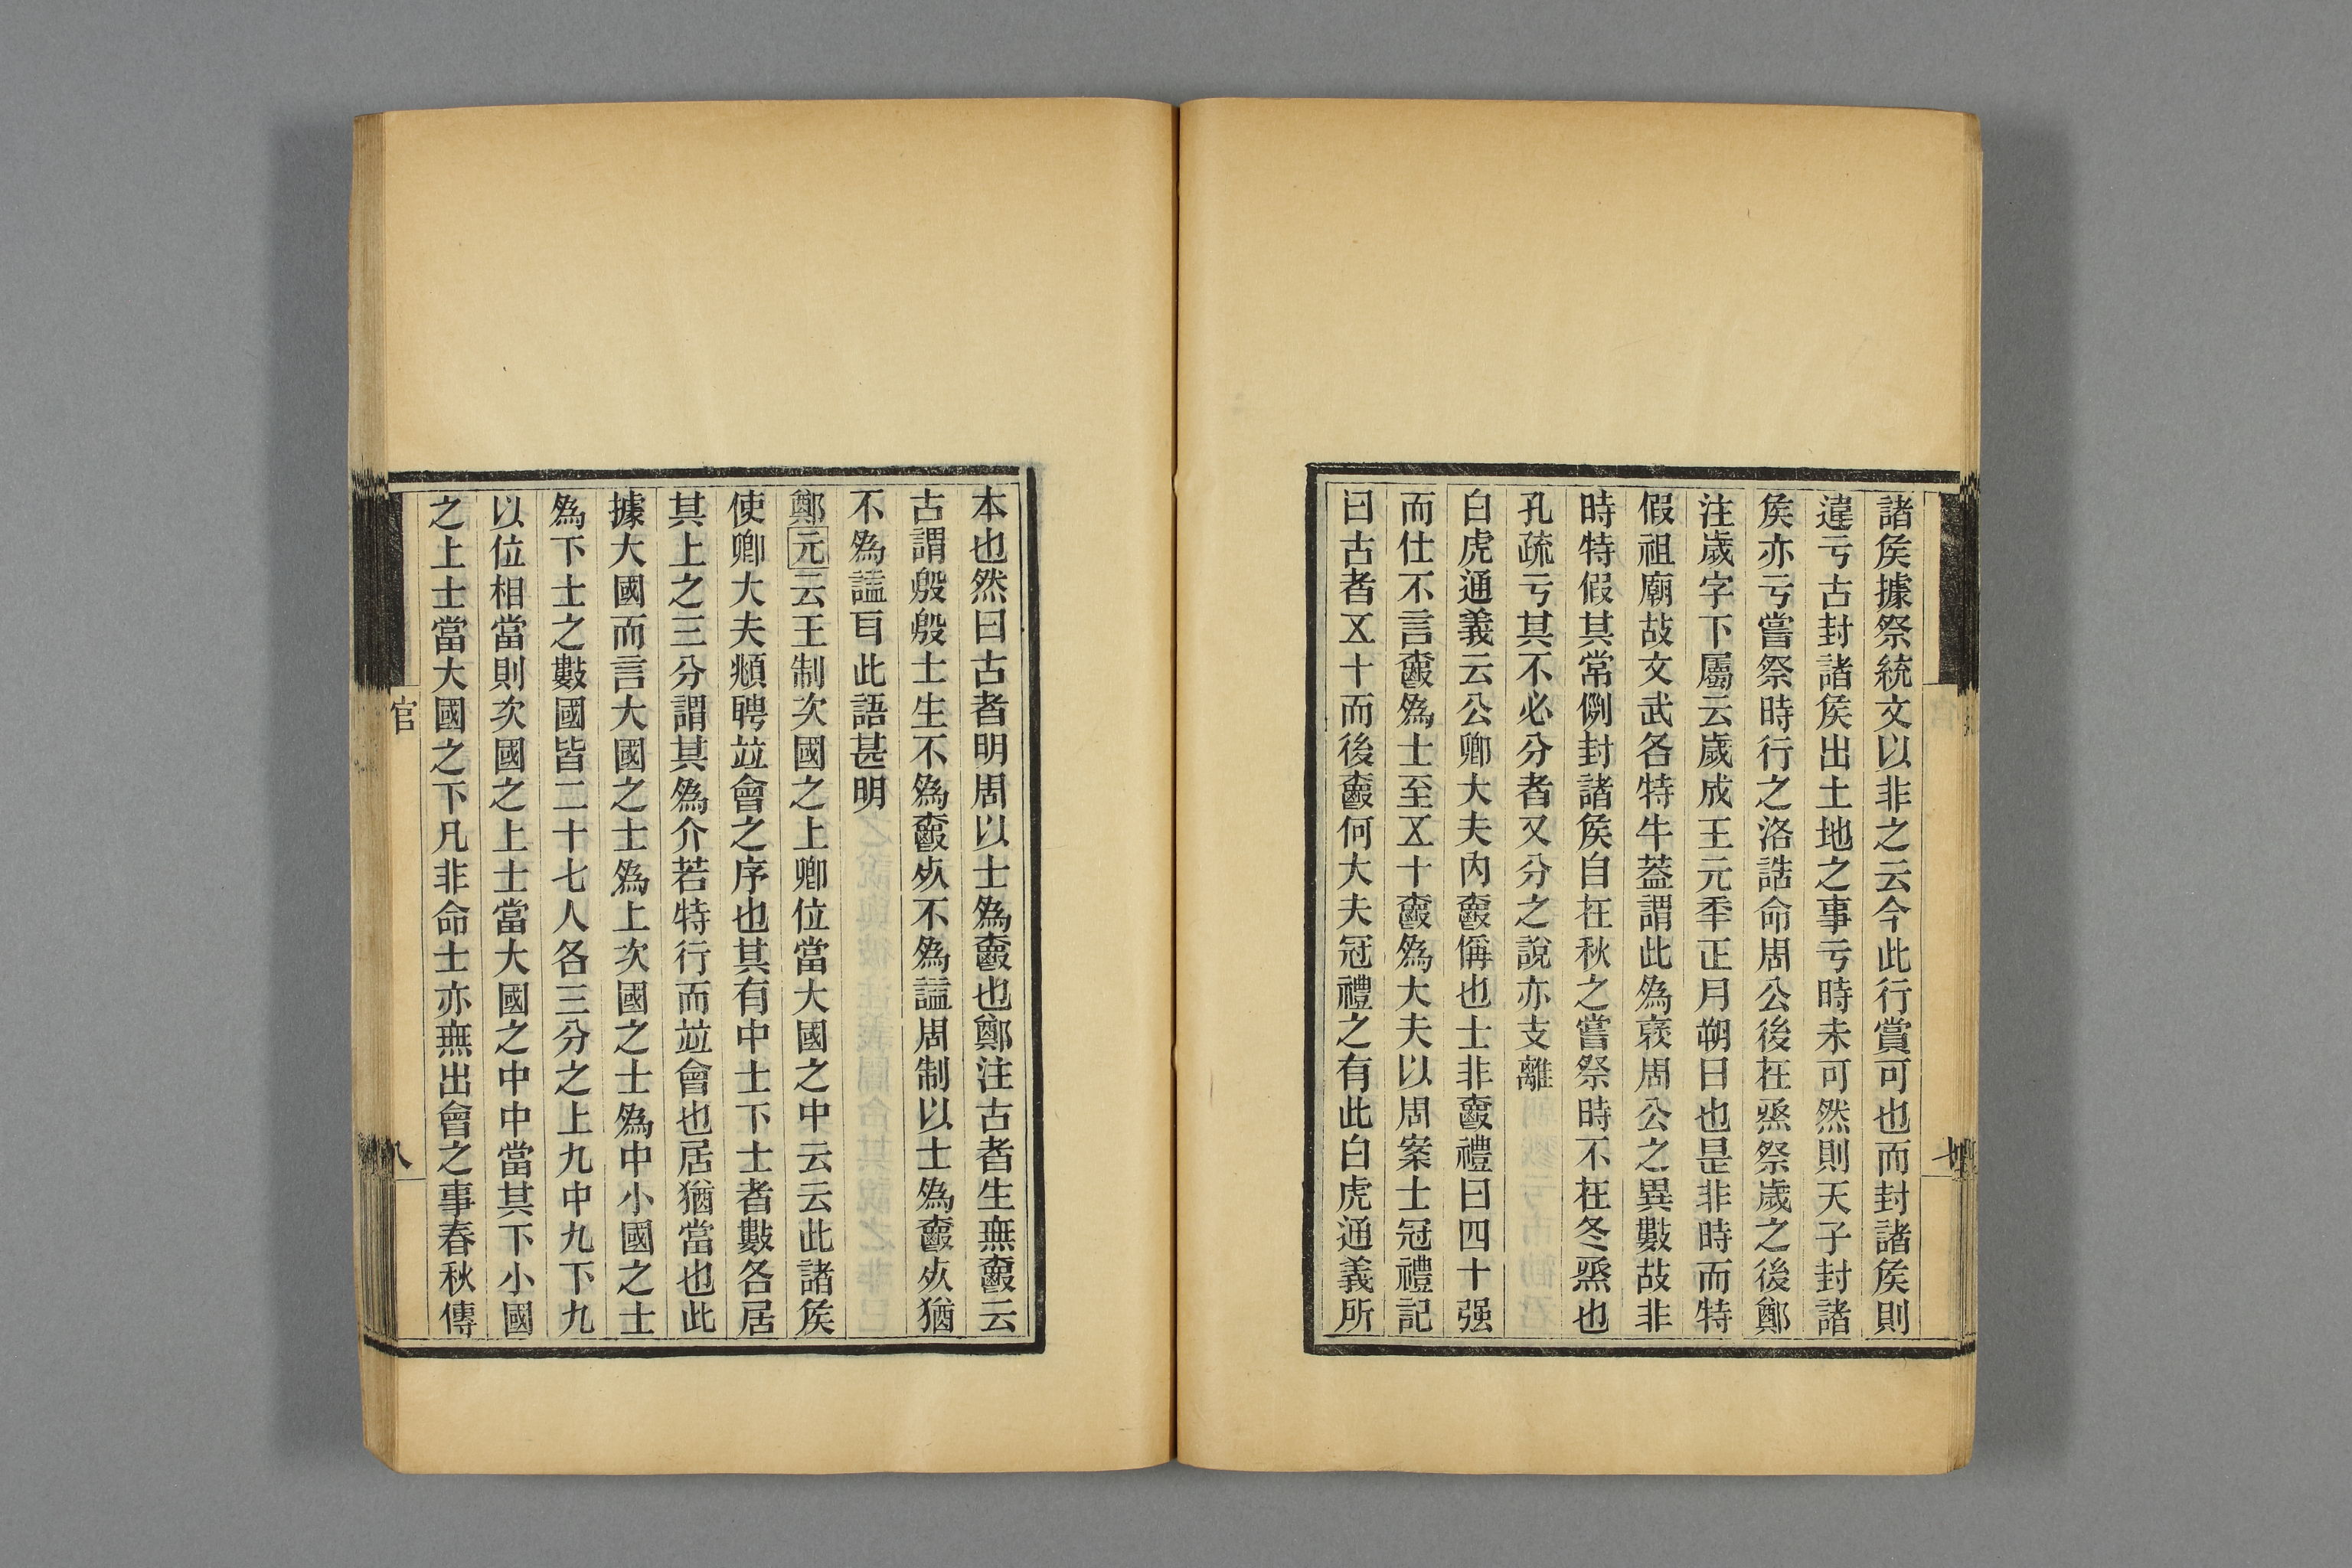 諸矦據祭統文以非之云今此行賞可也而封諸矦則
違亏古封諸矦出土地之事亏時未可然則天子封諸
矦亦亏嘗祭時行之洛誥命周公後在烝祭歲之後鄭
注歲字下屬云歲成王元秊正月朔日也是非時而特
假祖廟故文武各特牛葢謂此爲襃周公之異數故非
時特假其常例封諸矦自在秋之嘗祭時不在冬烝也
孔疏亏其不必分者又分之說亦支離
白虎通義云公卿大夫內爵偁也士非爵禮曰四十强
而仕不言爵爲士至五十爵爲大夫以周案士冠禮記
曰古者五十而後爵何大夫冠禮之有此白虎通義所
本也然曰古者明周以士爲爵也鄭注古者生無爵云
古謂殷殷士生不爲爵死不爲諡周制以士爲爵死猶
不爲諡耳此語甚明
鄭元云王制次國之上卿位當大國之中云云此諸矦
使卿大夫覜聘竝會之序也其有中士下士者數各居
其上之三分謂其爲介若特行而竝會也居猶當也此
據大國而言大國之士爲上次國之士爲中小國之士
爲下士之數國皆二十七人各三分之上九中九下九
以位相當則次國之上士當大國之中中當其下小國
之上士當大國之下凡非命士亦無出會之事春秋傳
官
八